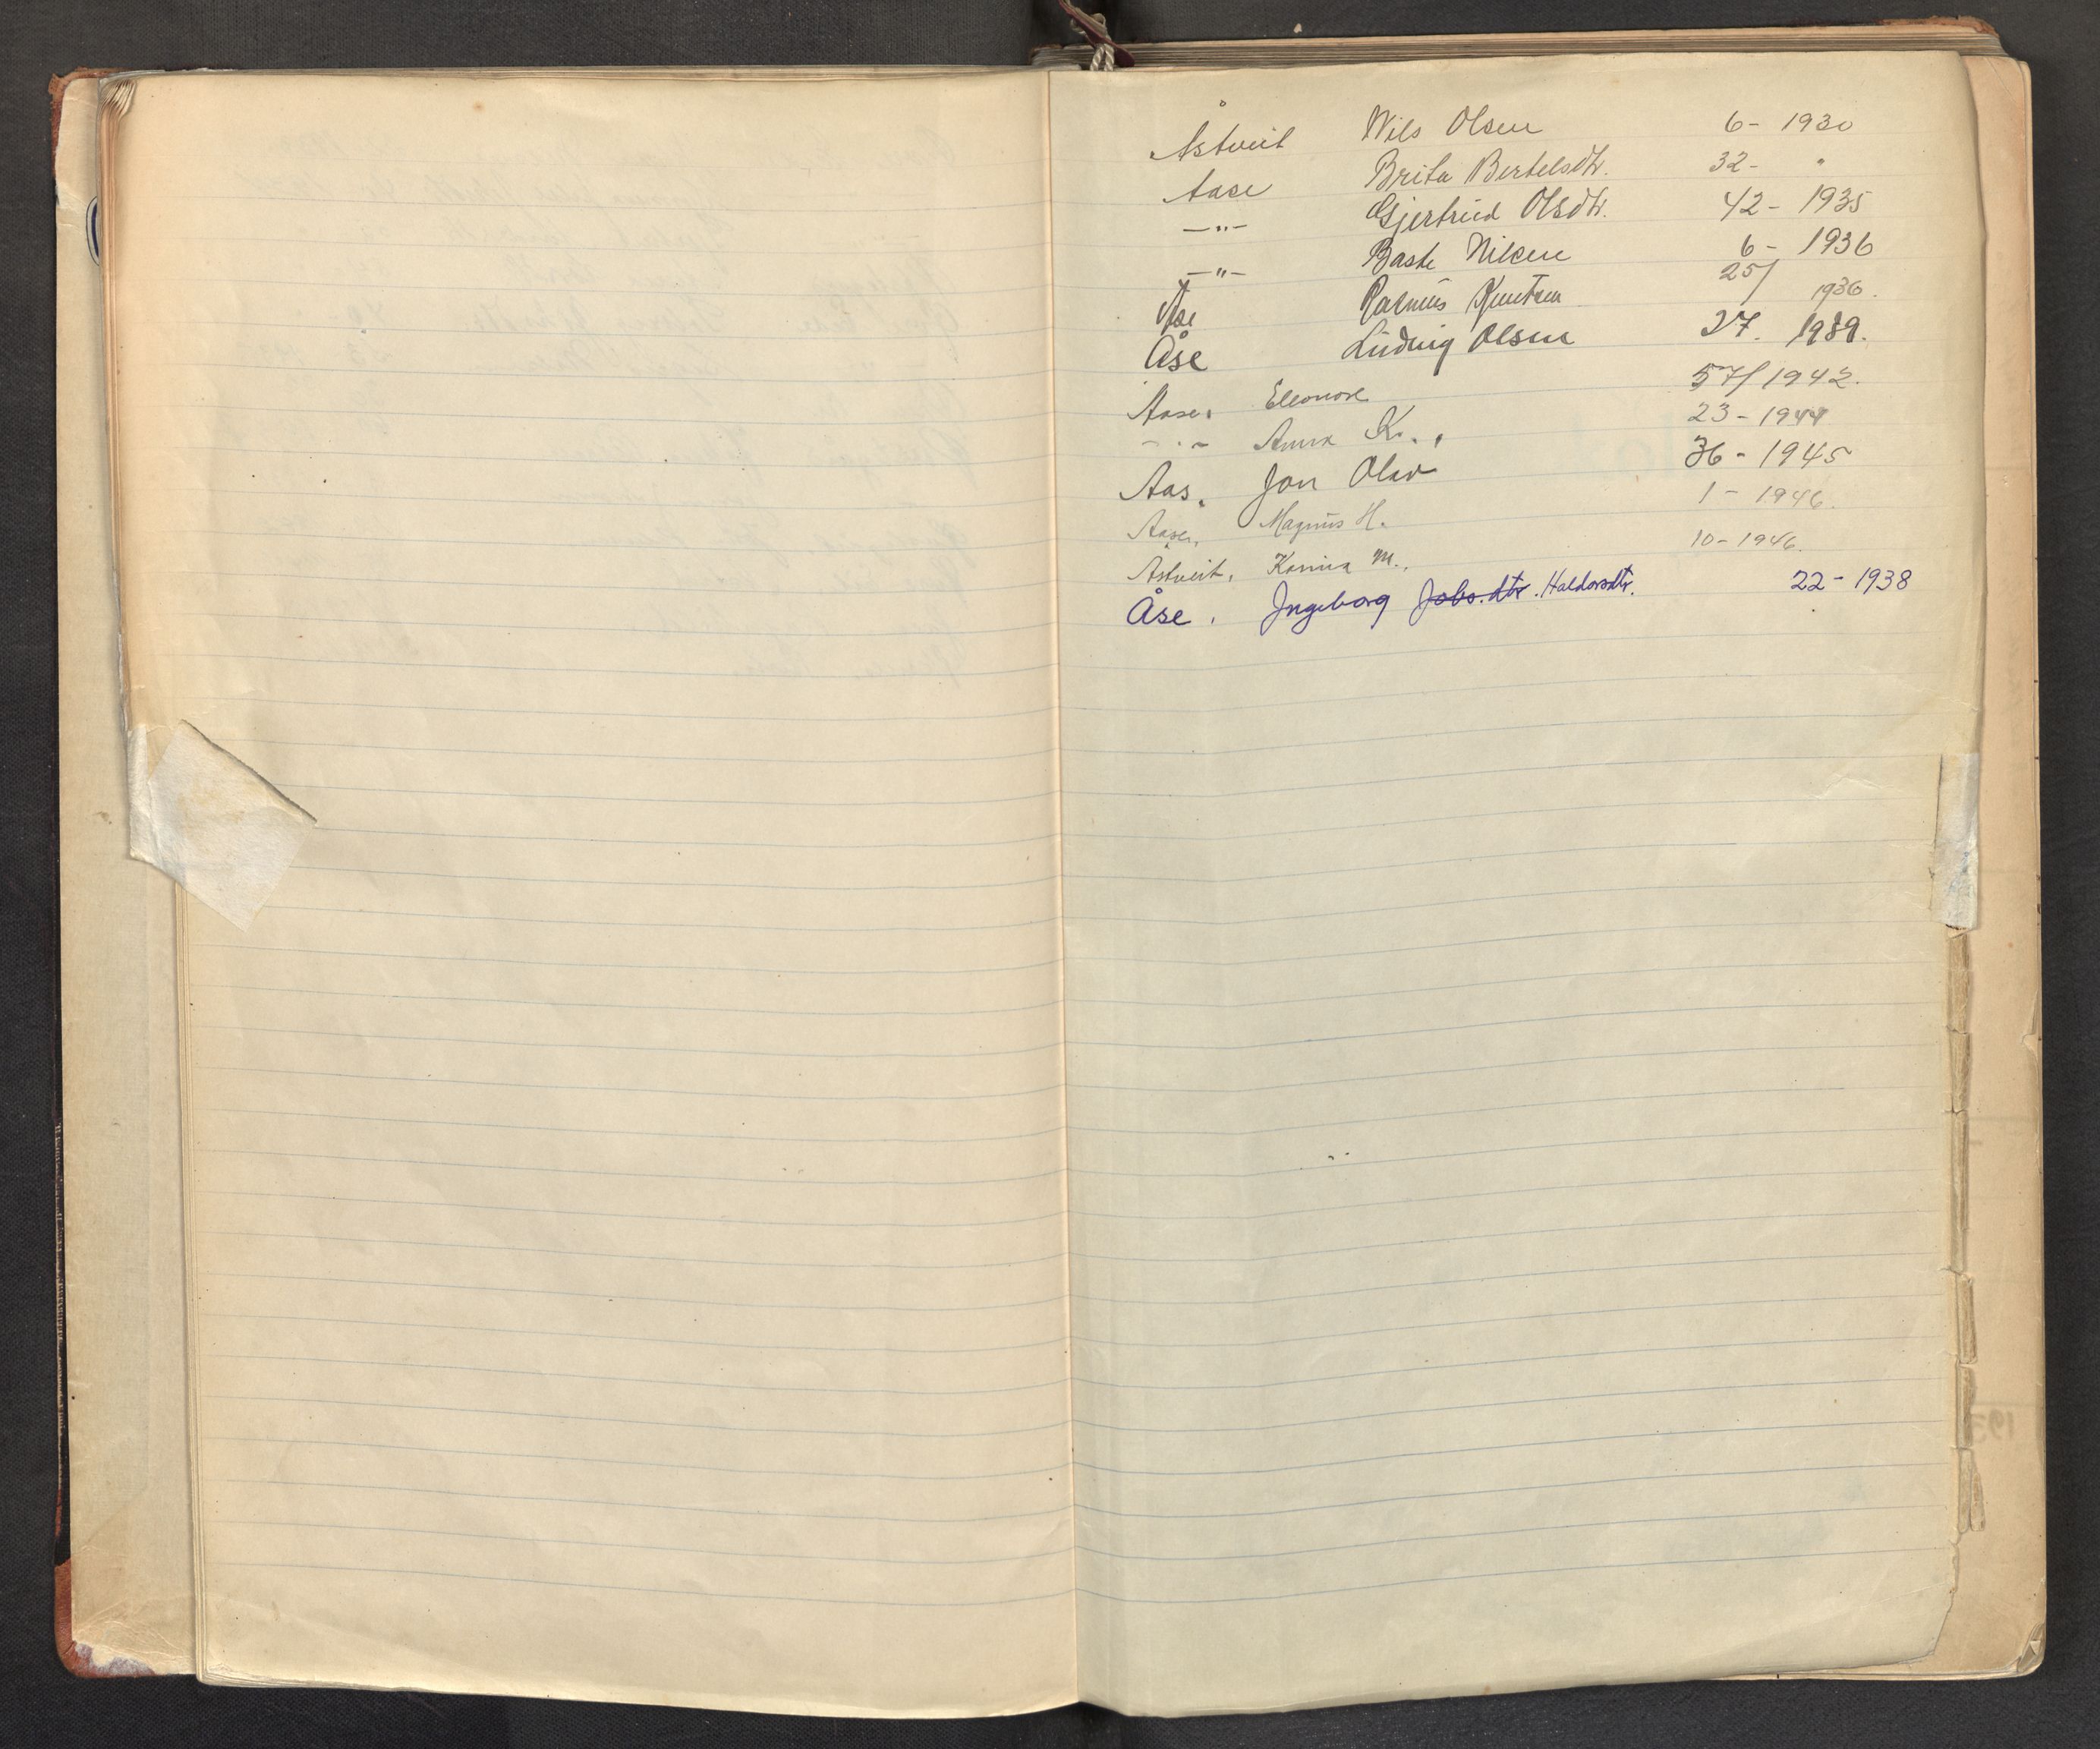 Åstveit Nils Olsen 6- 1930
Aase Brita Bertelsdtr. 32- "
-"- Gjertrud Olsdtr. 42- 1935
-"- Baste Nilsen 6- 1936
Åse Rasmus Knutsen 25/ 1936.
Åse Ludvig Olsen 27. 1939.
Aase, Eleonore 57/1942.
-"- Anna K.,
23-1944
Aas, Jon Olav 36-1945
Aase, Magnus H. 1-1946.
Åstveit, Karina M., 10-1946.
Åse, Ingeborg Jobs.dtr. Haldorsdtr. 22-1938